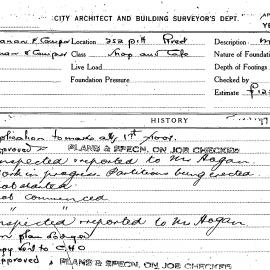 CITY ARCHITECT AND BUILDING SURVEYOR'S DEPT.
& Cowper Location 252 Pitt Description
& Cowper Class Shop and Cafe Nature of Foundation
Live Load Depth of Footings
Foundation Pressure Checked by
Estimate
HISTORY
application to 1st floor.
approved PLANS & SPECN. ON JOB CHECKED
Inspected & reported to Mr Hogan.
Work in progress. Partitions being erected.
Not started
Not commenced
" "
Inspected & reported to Mr Hogan.
on plan
Copy sent to C.H.O
Approved PLANS & SPECN. ON JOB CHECKED